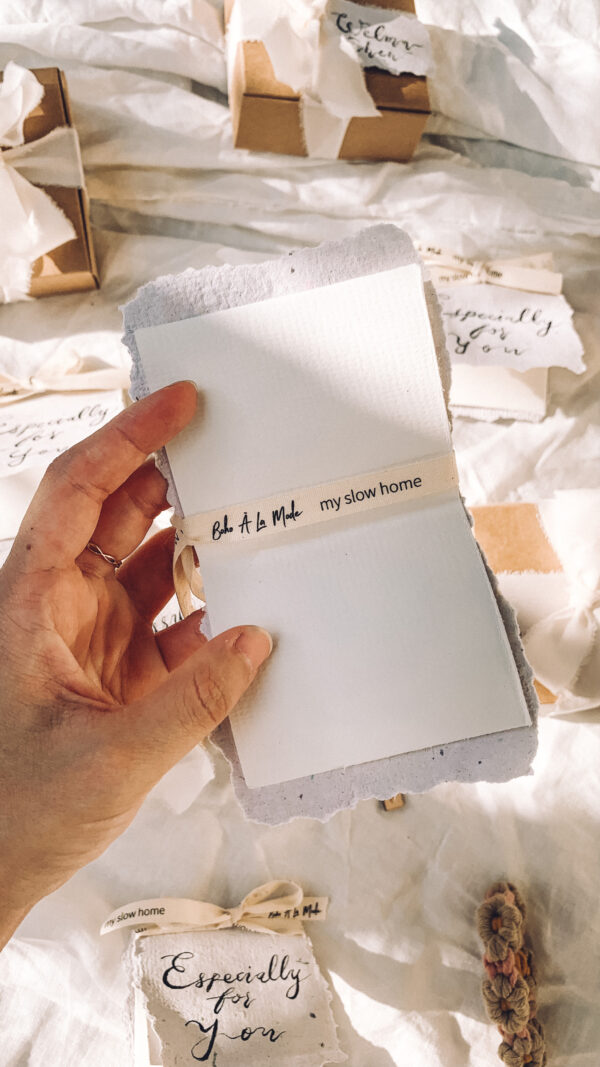 my slow home
Especially
for
You
Especially
for
You
Boho À La Mode my slow home
my slow home Boho À La Mode
Especially
for
You